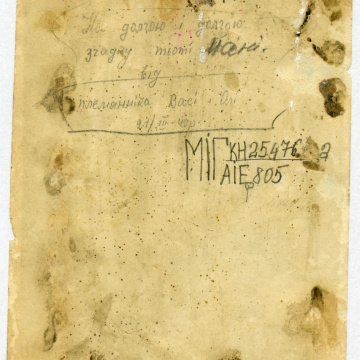 На долгою і долгою
згадку тіоті Мані.
від
племянніка Васі і Олі
21/III-47р.
МІГ КН 25.476 а
АІЕ 805